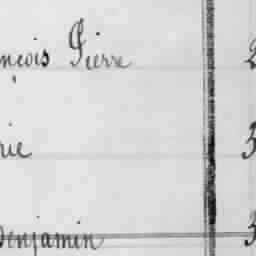 nçois Pierre 2
rie 3
Benjamin 3